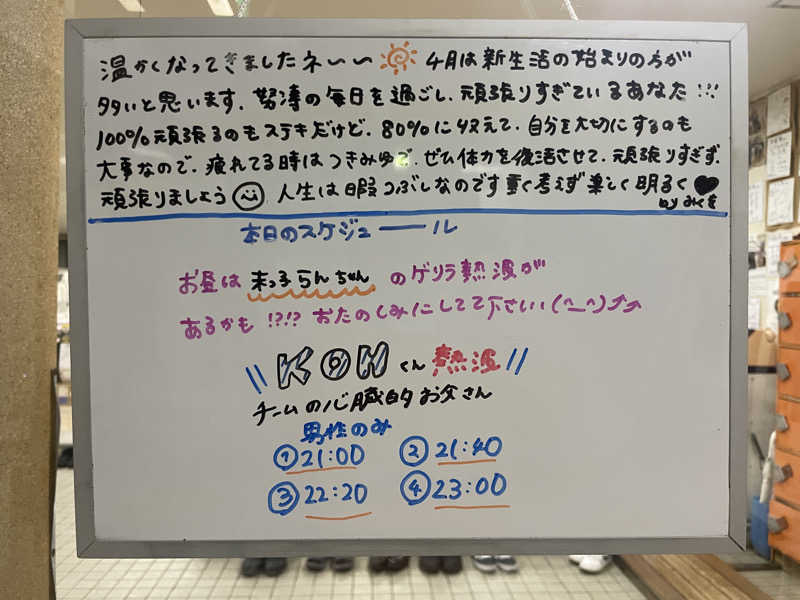 温かくなってきましたネ〜〜 4月は新生活の始まりの方が
多いと思います。怒涛の毎日を過ごし、頑張りすぎているあなた!!!
100%頑張るのもステキだけど、80%に抑えて、自分を大切にするのも
大事なので、疲れてる時はつきみゆで、ぜひ体力を復活させて、頑張りすぎず、
頑張りましょう 人生は暇つぶしなのです重く考えず楽しく明るく♥
by みくを
本日のスケジュール
お昼は 末っ子らんちゃん のゲリラ熱波が
あるかも !?!? おたのしみにしてて下さいい(^_^)♪♪
\\KOHくん熱波//
チームの心臓的お父さん
男性のみ
①21:00 ②21:40
③22:20 ④23:00